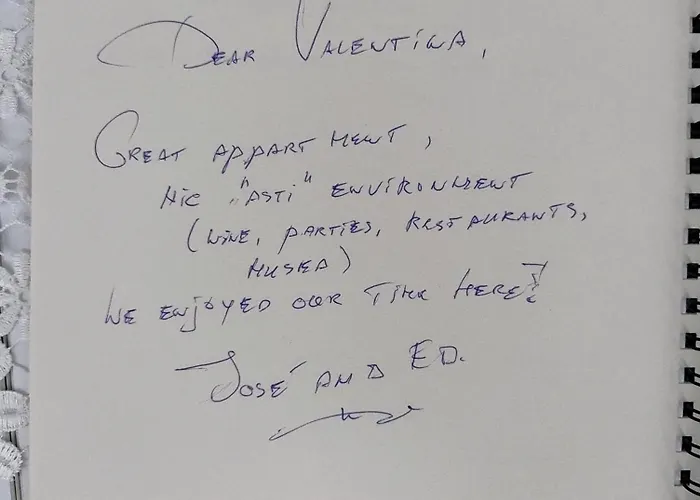 Dear Valentina,
Great appartment,
Nic „Asti" environment
(wine, parties, restaurants,
musea)
We enjoyed our time here!
José and Ed.